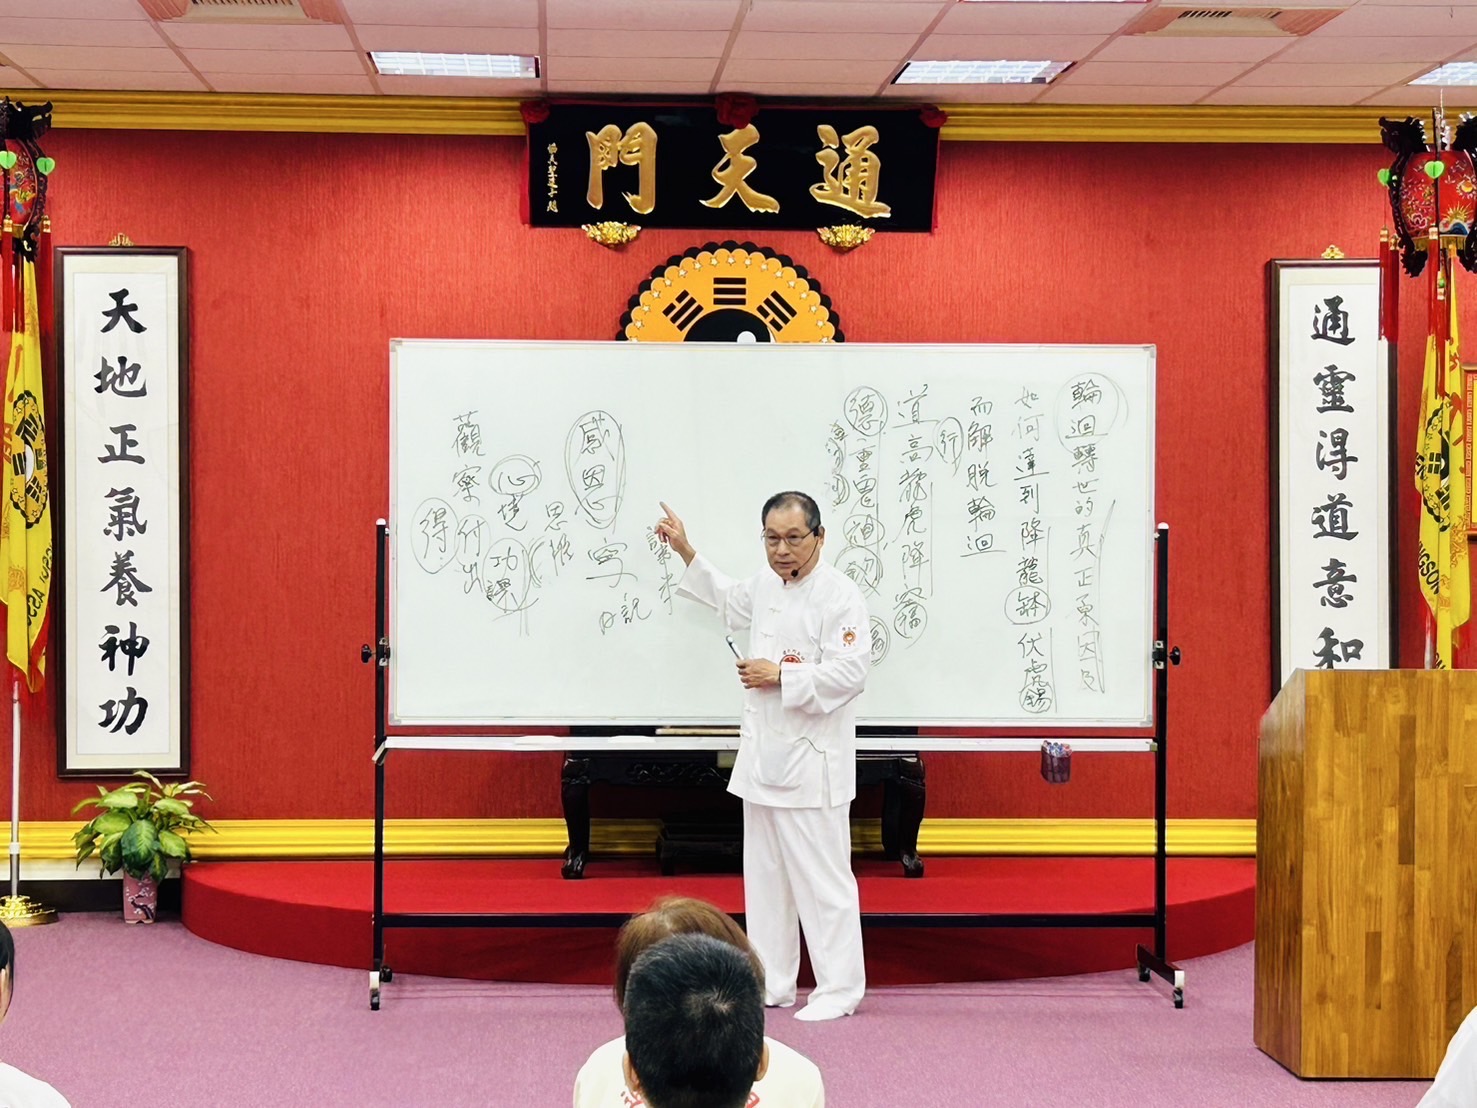 通天門
天地正氣養神功
通靈得道意和
輪迴轉世的真正原因及
如何達到降龍鉢伏虎錫
而解脫輪迴
行
道高龍虎降
福
德重鬼神欽
感恩
寫日記
思惟
心境功課
觀察付出
得